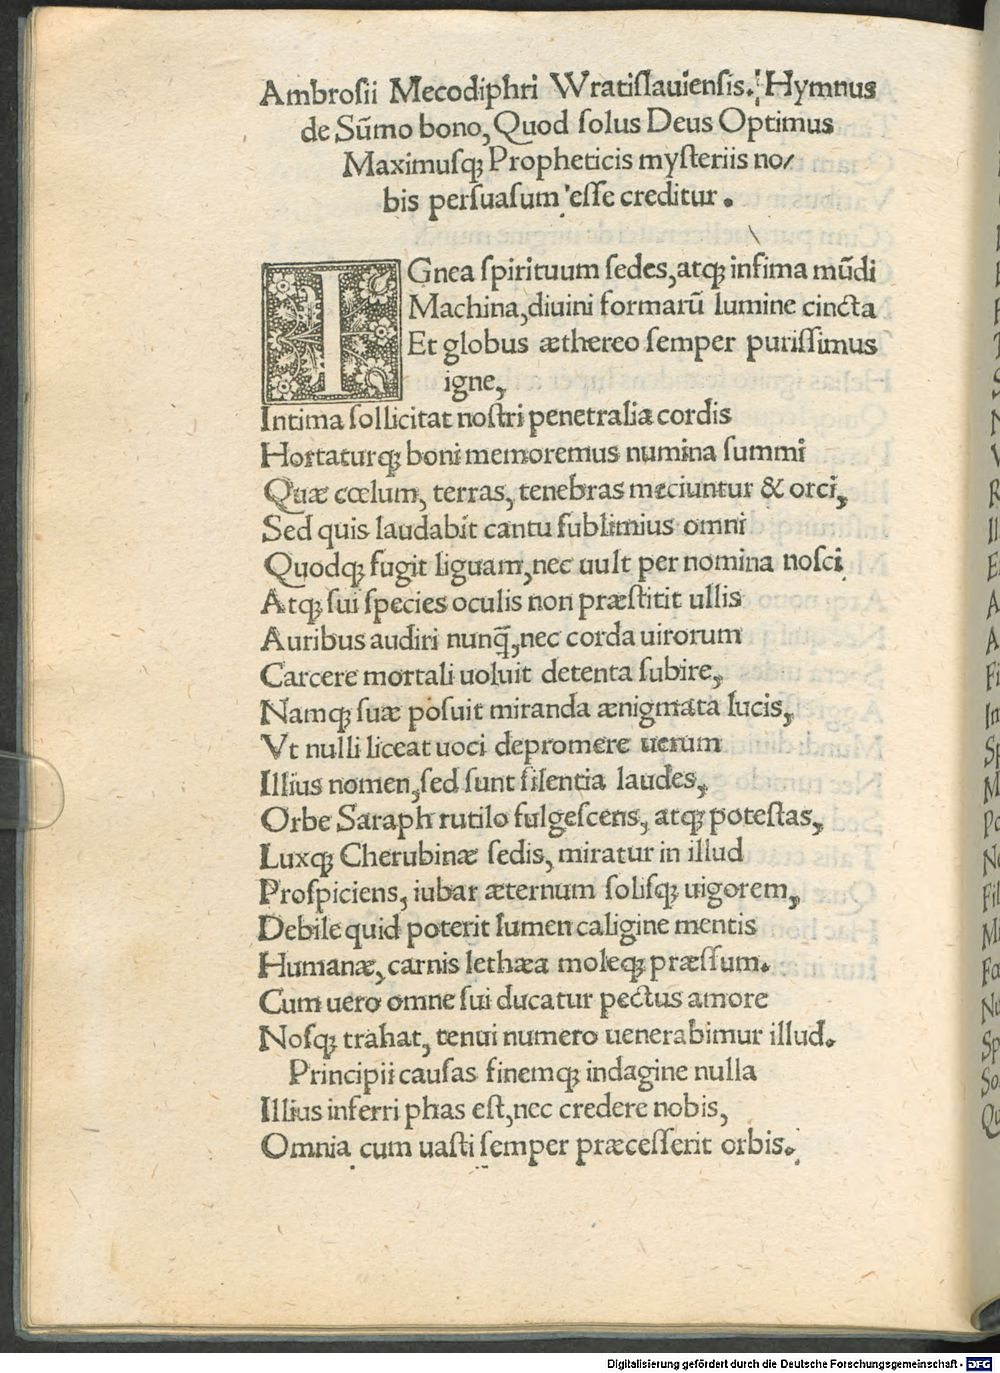 Ambroſii Mecodiphri Wratiſlauienſis. Hymnus
de Sūmo bono, Quod ſolus Deus Optimus
Maximuſqꝫ Propheticis myſteriis no/
bis perſuaſum eſſe creditur.
IGnea ſpirituum ſedes, atqꝫ infima mūdi
Machina, diuini formarū lumine cincta
Et globus æthereo ſemper puriſſimus
igne,
Intima ſollicitat noſtri penetralia cordis
Hortaturqꝫ boni memoremus numina ſummi
Quæ cœlum, terras, tenebras meciuntur & orci,
Sed quis laudabit cantu ſublimius omni
Quodqꝫ fugit liguam, nec uult per nomina noſci
Atqꝫ ſui ſpecies oculis non præſtitit ullis
Auribus audiri nunq̄, nec corda uirorum
Carcere mortali uoluit detenta ſubire,
Namqꝫ ſuæ poſuit miranda ænigmata lucis,
Vt nulli liceat uoci depromere uerum
Illius nomen, ſed ſunt ſilentia laudes,
Orbe Saraph rutilo fulgeſcens, atqꝫ poteſtas,
Luxqꝫ Cherubinæ ſedis, miratur in illud
Proſpiciens, iubar æternum ſoliſqꝫ uigorem,
Debile quid poterit lumen caligine mentis
Humanæ, carnis lethæa moleqꝫ præſſum.
Cum uero omne ſui ducatur pectus amore
Noſqꝫ trahat, tenui numero uenerabimur illud.
Principii cauſas finemqꝫ indagine nulla
Illius inferri phas eſt, nec credere nobis,
Omnia cum uaſti ſemper præceſſerit orbis.
Digitalisierung gefördert durch die Deutsche Forschungsgemeinschaft - DFG